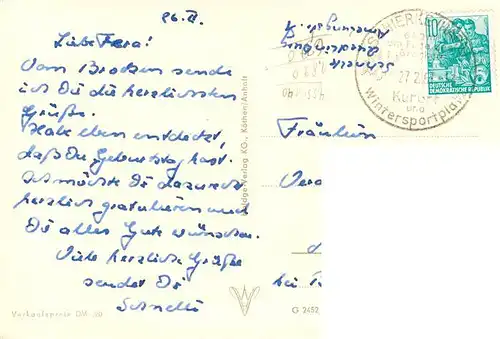 26. II.
Liebe Vera!
Vom Brocken sende
ich Dir die herzlichsten
Grüße.
Habe eben entdeckt,
daß Du Geburtstag hast.
Ich möchte Dir dazu recht
herzlich gratulieren und
Dir alles Gute wünschen.
Viele herzliche Grüße
sendet Dir
Verkaufspreis DM
Verlag KG., Köthen/Anhalt
G 2452
Schnelle
Quedlinburg
SCHIERKE
27.2.
Kurort
und
Wintersportplatz
10
DEUTSCHE
DEMOKRATISCHE REPUBLIK
Fräulein
Vera
bei